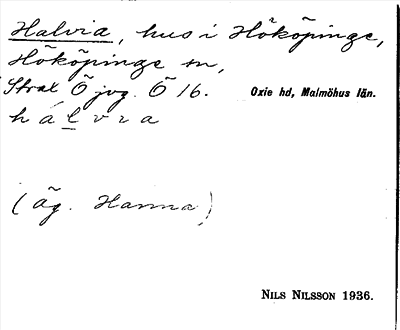 Halvia, hus i Hököpinge,
Hököpinge sn,
Strax Ö jvg. Ö 16. Oxie hd, Malmöhus län.
(Äg. Hanna)
NILS NILSSON 1936.